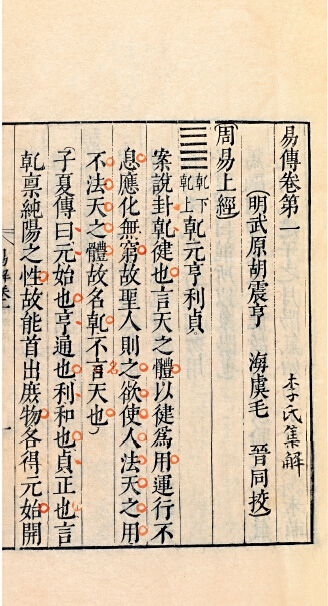 易傳卷第一
李氏集解
明武原胡震亨 海虞毛 晉同挍
周易上經
乾下乾上 乾元亨利貞
案說卦乾健也言天之體以健爲用運行不
息應化無窮故聖人則之欲使人法天之用
不法天之體故名乾不言天也
子夏傳曰元始也亨通也利和也貞正也言
乾禀純陽之性故能首出庶物各得元始開